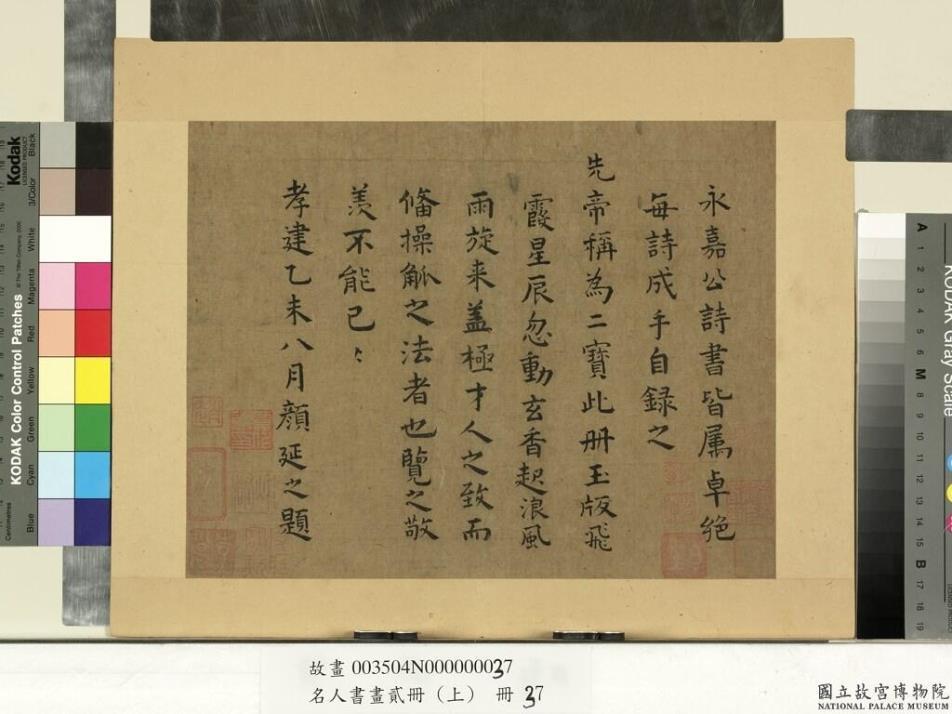 永嘉公詩書皆屬卓絶
每詩成手自録之
先帝稱為二寶此册玉版飛
霞星辰忽動玄香起浪風
雨旋来蓋極才人之致而
俻操觚之法者也覽之敬
羡不能已〻
孝建乙未八月顔延之題
Kodak
LICENSED PRODUCT
Black
3/Color
White
Magenta
Red
Yellow
Green
Cyan
Blue
KODAK Color Control Patches
© The Tiffen Company, 2000
Centimetres
KODAK Gray Scale
A 1 2 3 4 5 6 M 8 9 10 11 12 13 14 15 B 17 18 19
故畫 003504N000000037
名人書畫貳冊（上） 冊 37
國立故宮博物院
NATIONAL PALACE MUSEUM